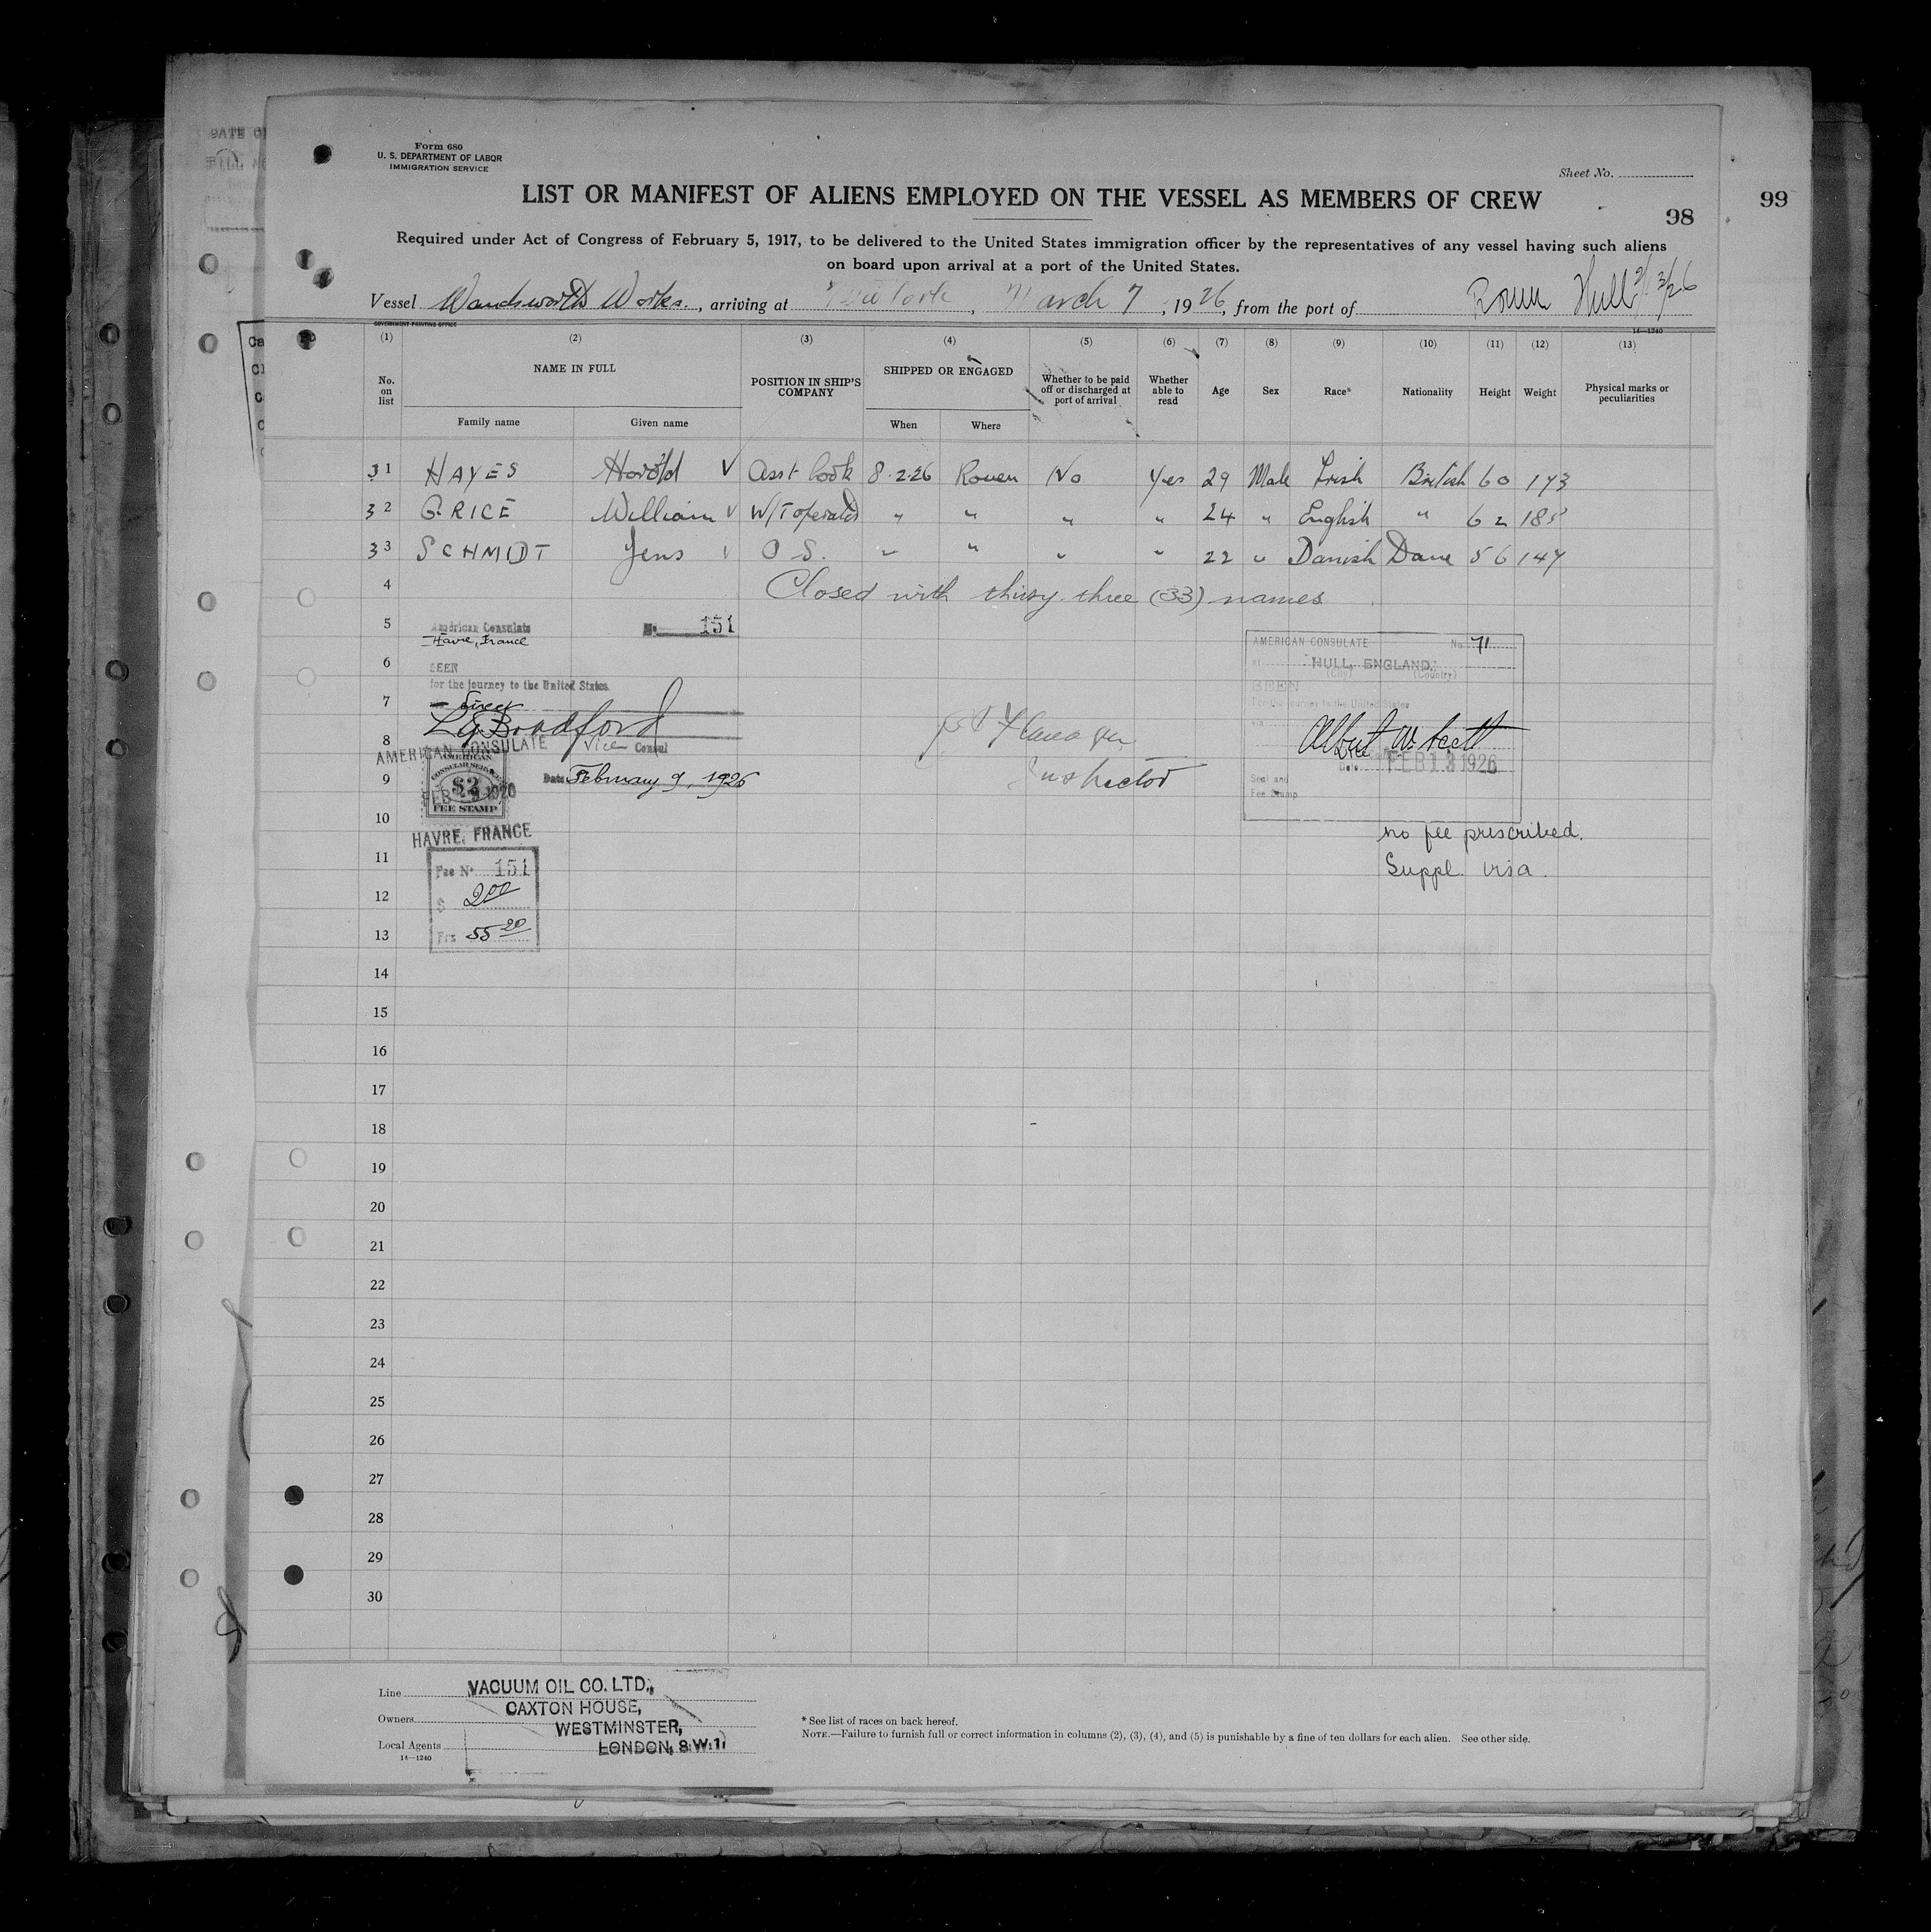 Form 680
U. S. DEPARTMENT OF LABOR
IMMIGRATION SERVICE
Sheet No.
LIST OR MANIFEST OF ALIENS EMPLOYED ON THE VESSEL AS MEMBERS OF CREW
98
99
Required under Act of Congress of February 5, 1917, to be delivered to the United States immigration officer by the representatives of any vessel having such aliens
on board upon arrival at a port of the United States.
Vessel Wandsworth Works, arriving at New York, March 7, 1926, from the port of Rouen Hull
GOVERNMENT PRINTING OFFICE
14—1240
(1) (2) (3) (4) (5) (6) (7) (8) (9) (10) (11) (12) (13)
No. on list NAME IN FULL POSITION IN SHIP'S COMPANY SHIPPED OR ENGAGED Whether to be paid off or discharged at port of arrival Whether able to read Age Sex Race* Nationality Height Weight Physical marks or peculiarities
Family name Given name When Where
31 HAYES Harold V Asst Cook 8.2.26 Rouen No Yes 29 Male Irish British 60 173
32 GRICE William V W/T operator " " " " 24 " English " 62
33 SCHMIDT Jens V O S. " " " " 22 " Danish Dane 56 147
4 Closed with thirty three (33) names
5 American Consulate
Havre, France
No. 151
6 SEEN
for the journey to the United States
7 direct
8 Vice Consul
AMERICAN CONSULATE
9 Date February 9, 1926
AMERICAN
CONSULAR SERVICE
$2
FEE STAMP
HAVRE, FRANCE
Inspector
AMERICAN CONSULATE No. 71
at HULL, ENGLAND.
(City) (Country)
SEEN
For the journey to the United States
via
Albert W. Scott
Date FEB 13 1926
Seal and
Fee Stamp
10 no fee prescribed.
11 Suppl. visa.
Fee No. 151
12 $ 2 00
13 Frs 55 20
14
15
16
17
18
19
20
21
22
23
24
25
26
27
28
29
30
Line VACUUM OIL CO. LTD.,
CAXTON HOUSE,
Owners WESTMINSTER,
Local Agents LONDON, S.W.1
14—1240
* See list of races on back hereof.
NOTE.—Failure to furnish full or correct information in columns (2), (3), (4), and (5) is punishable by a fine of ten dollars for each alien. See other side.